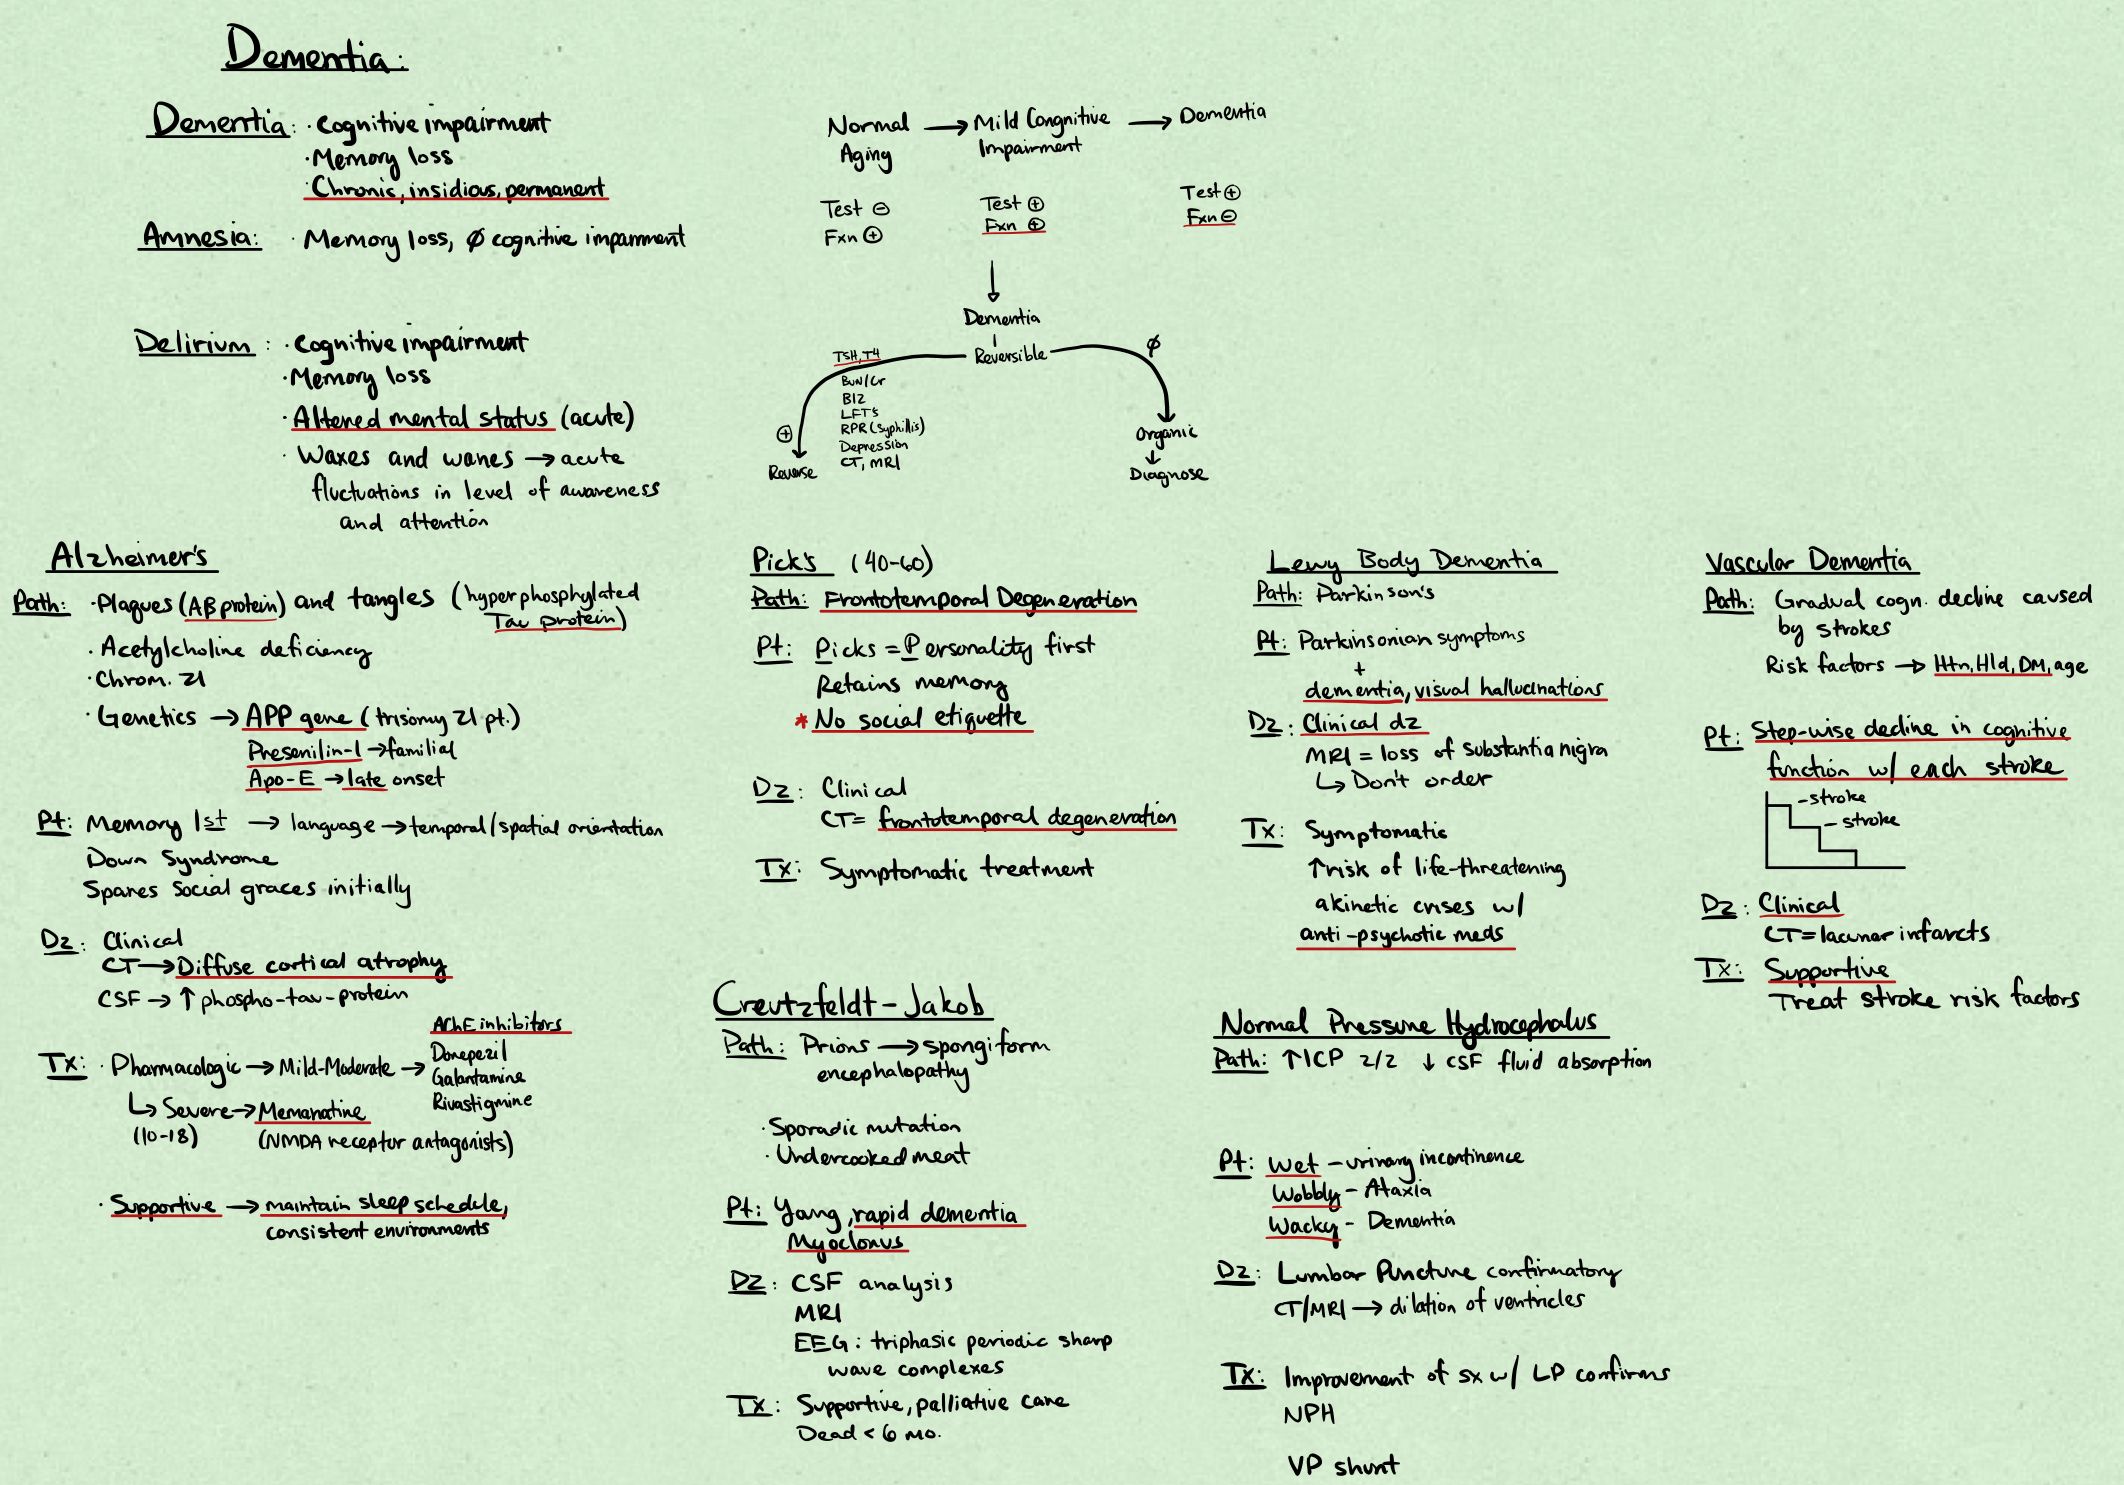 Dementia:
Dementia: · Cognitive impairment
· Memory loss
· Chronic, insidious, permanent
Amnesia: · Memory loss, ∅ cognitive impairment
Delirium: · Cognitive impairment
· Memory loss
· Altered mental status (acute)
· Waxes and wanes → acute
fluctuations in level of awareness
and attention
Normal Aging → Mild Congnitive Impairment → Dementia
Test ⊖
Fxn ⊕
Test ⊕
Fxn ⊕
Test ⊕
Fxn ⊖
Dementia
Reversible
TSH, T4
BUN/Cr
B12
LFTs
RPR (syphillis)
Depression
CT, MRI
⊕
Reverse
∅
Organic
↓
Diagnose
Alzheimer's
Path: · Plaques (AB protein) and tangles (hyperphosphylated
Tau protein)
· Acetylcholine deficiency
· Chrom. 21
· Genetics → APP gene (trisomy 21 pt.)
Presenilin-1 → familial
Apo-E → late onset
Pt: Memory 1st → language → temporal/spatial orientation
Down Syndrome
Spares social graces initially
Dz: Clinical
CT → Diffuse cortical atrophy
CSF → ↑ phospho-tau-protein
Tx: · Pharmacologic → Mild-Moderate →
AChE inhibitors
Donepezil
Galantamine
Rivastigmine
↳ Severe → Memanatine
(10-18) (NMDA receptor antagonists)
· Supportive → maintain sleep schedule,
consistent environments
Pick's (40-60)
Path: Frontotemporal Degeneration
Pt: Picks = Personality first
Retains memory
* No social etiquette
Dz: Clinical
CT = frontotemporal degeneration
Tx: Symptomatic treatment
Creutzfeldt-Jakob
Path: Prions → spongiform
encephalopathy
· Sporadic mutation
· Undercooked meat
Pt: Yong, rapid dementia
Myoclonus
DZ: CSF analysis
MRI
EEG: triphasic periodic sharp
wave complexes
Tx: Supportive, palliative care
Dead < 6 mo.
Lewy Body Dementia
Path: Parkinson's
Pt: Parkinsonian symptoms
+
dementia, visual hallucinations
Dz: Clinical dz
MRI = loss of substantia nigra
↳ Don't order
Tx: Symptomatic
↑ risk of life-threatening
akinetic crises w/
anti-psychotic meds
Normal Pressure Hydrocephalus
Path: ↑ICP 2/2 ↓ CSF fluid absorption
Pt: Wet - urinary incontinence
Wobbly - Ataxia
Wacky - Dementia
Dz: Lumbar Puncture confirmatory
CT/MRI → dilation of ventricles
Tx: Improvement of sx w/ LP confirms
NPH
VP shunt
Vascular Dementia
Path: Gradual cogn. decline caused
by strokes
Risk factors → Htn, Hld, DM, age
Pt: Step-wise decline in cognitive
function w/ each stroke
- stroke
- stroke
Dz: Clinical
CT = lacunar infarcts
Tx: Supportive
Treat stroke risk factors